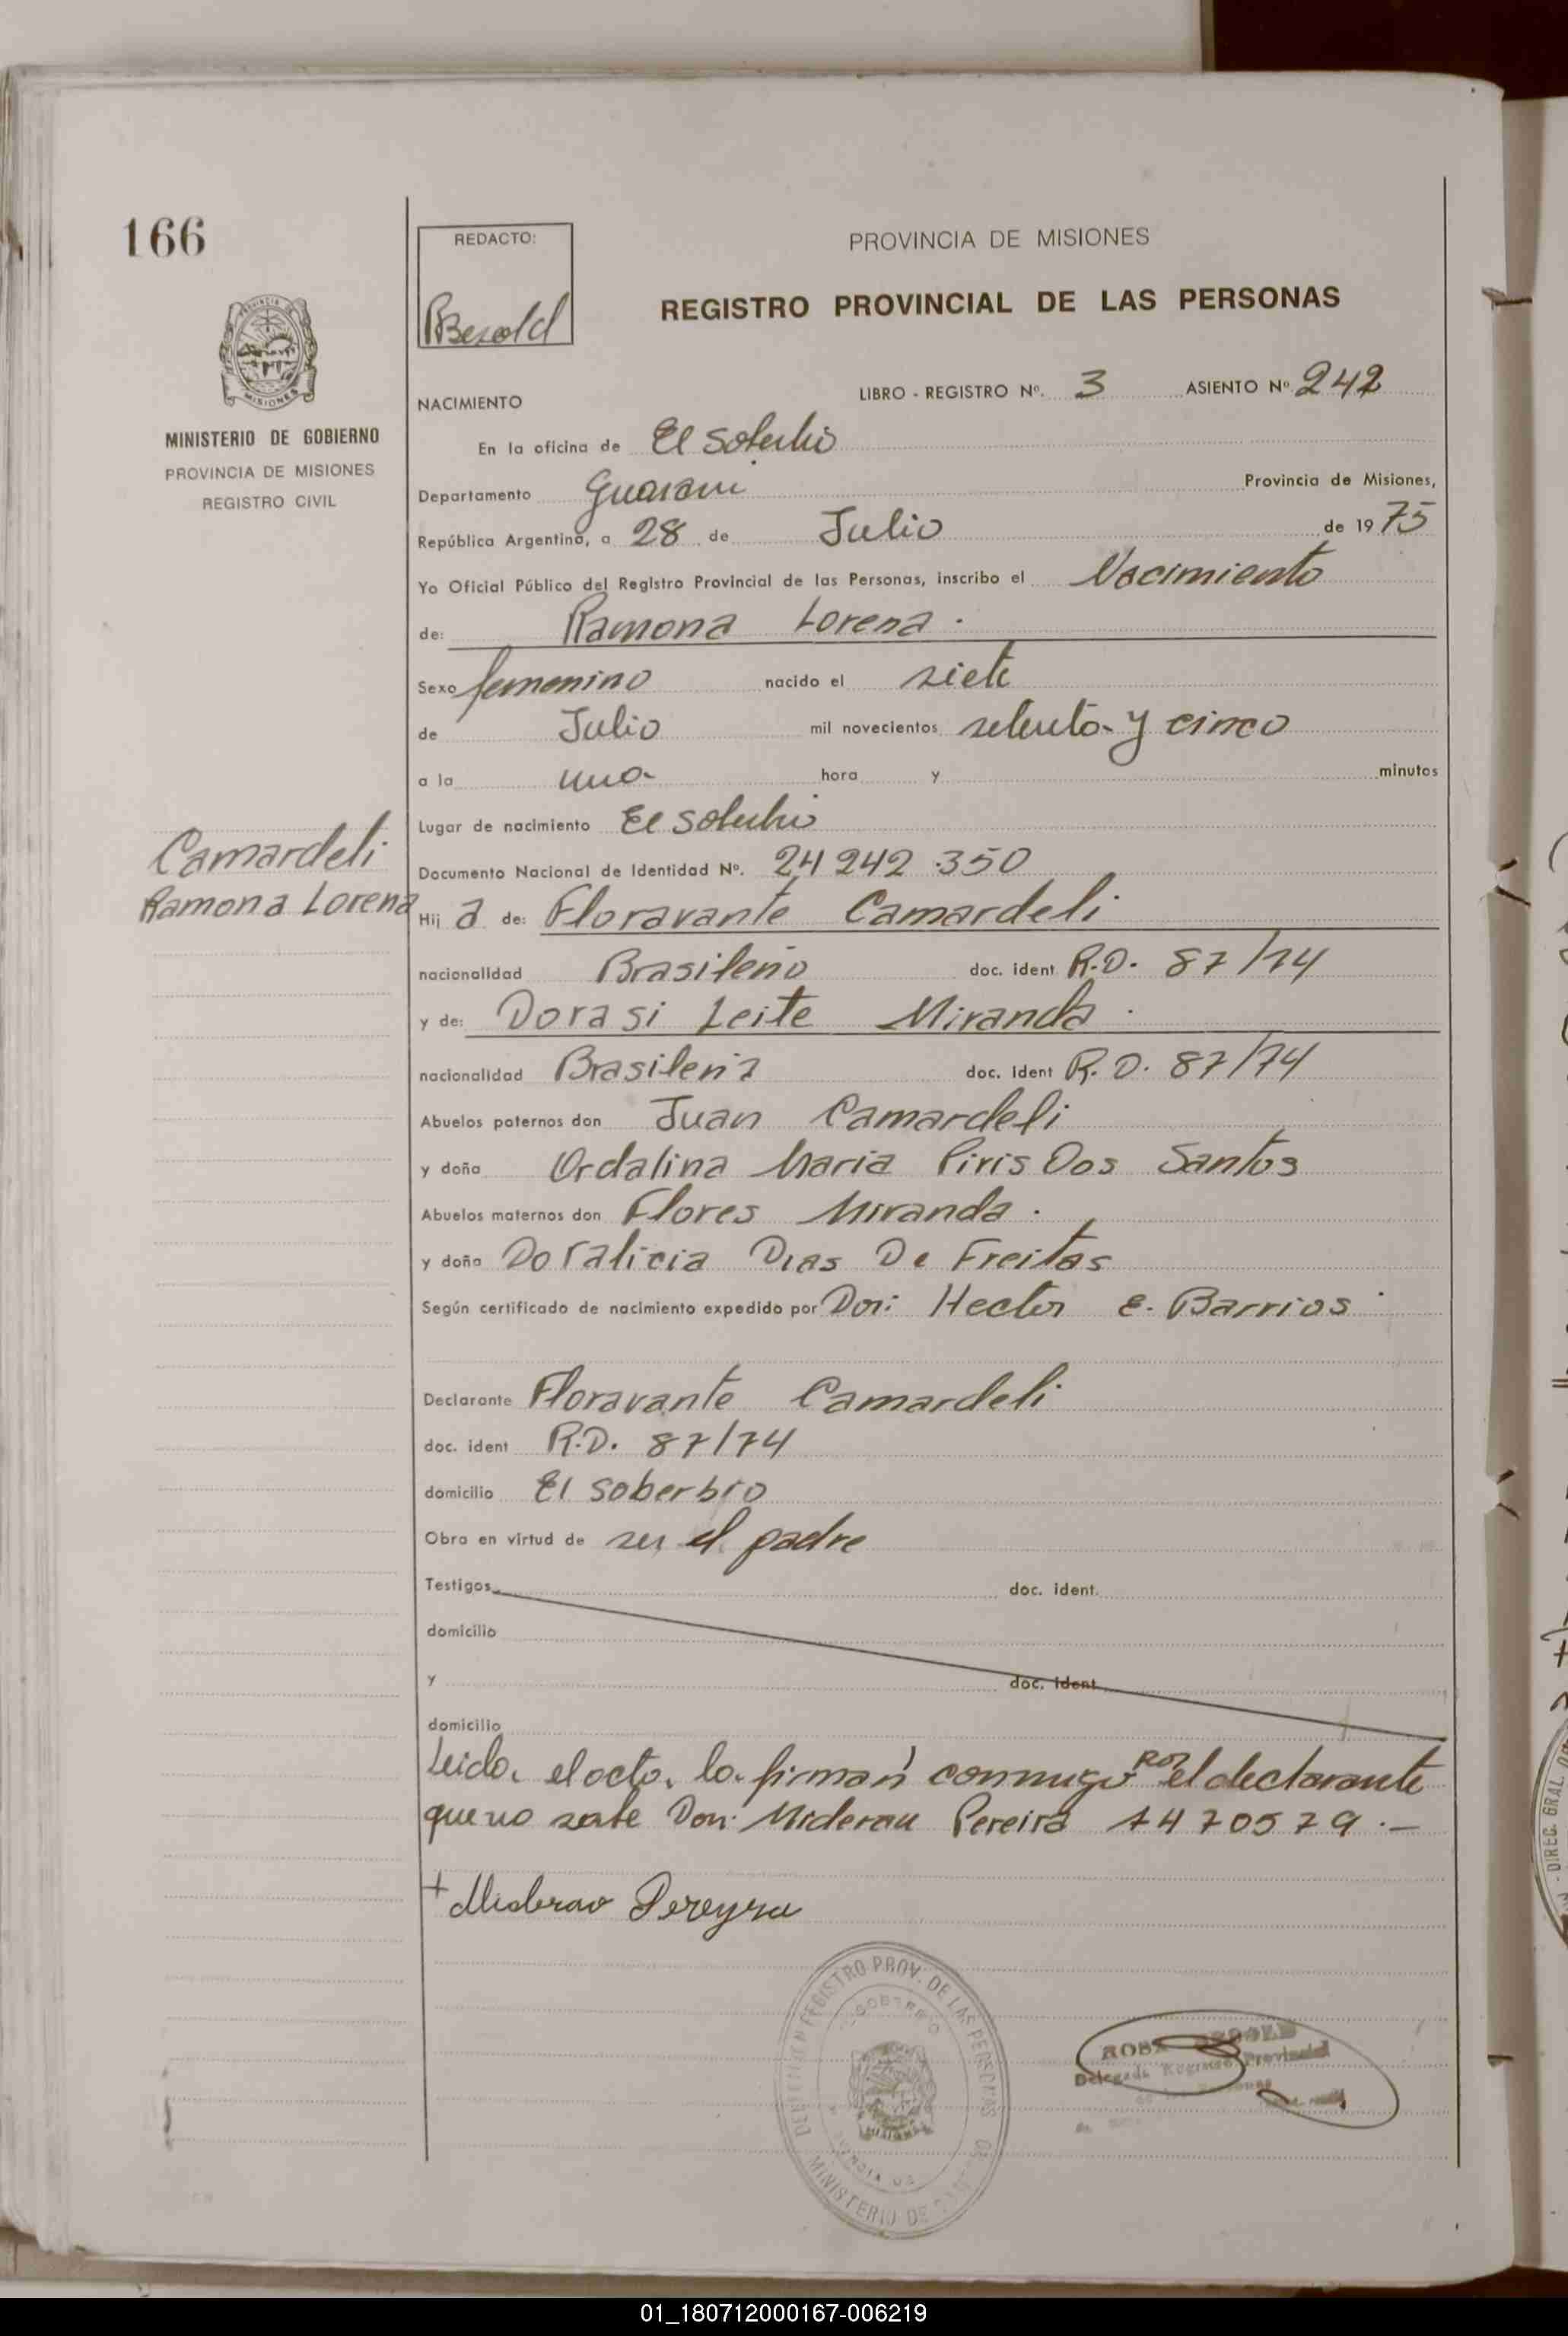 166
REDACTO:
Bezold
PROVINCIA DE MISIONES
REGISTRO PROVINCIAL DE LAS PERSONAS
MINISTERIO DE GOBIERNO
PROVINCIA DE MISIONES
REGISTRO CIVIL
NACIMIENTO LIBRO - REGISTRO Nº. 3 ASIENTO Nº 242
En la oficina de El Soberbio
Departamento Guarani Provincia de Misiones,
República Argentina, a 28 de Julio de 1975
Yo Oficial Público del Registro Provincial de las Personas, inscribo el Nacimiento
de: Ramona Lorena.
Sexo femenino nacido el siete
de Julio mil novecientos setenta y cinco
a la una hora y minutos
Lugar de nacimiento El Soberbio
Camardeli
Ramona Lorena
Documento Nacional de Identidad Nº. 24 242.350
Hij a de: Floravante Camardeli
nacionalidad Brasileño doc. ident R.D. 87/74
y de: Dorasi Leite Miranda.
nacionalidad Brasileña doc. ident R.D. 87/74
Abuelos paternos don Juan Camardeli
y doña Ordalina Maria Piris Dos Santos
Abuelos maternos don Flores Miranda.
y doña Doralicia Dias De Freitas
Según certificado de nacimiento expedido por Don: Hector E. Barrios
Declarante Floravante Camardeli
doc. ident R.D. 87/74
domicilio El soberbio
Obra en virtud de ser el padre
Testigos doc. ident.
domicilio
y doc. ident.
domicilio
Leido el acto lo firman conmigo el declarante
que no sabe Don: Miderau Pereira 1470579.-
+ Misderao Pereyra
REGISTRO PROV. DE LAS PERSONAS
MINISTERIO DE
MISIONES
Delegada Registro Provincial
01_180712000167-006219